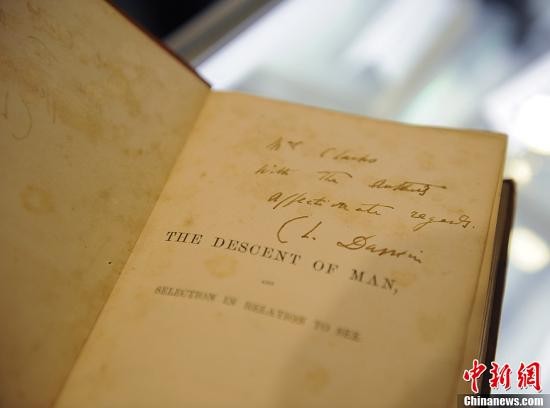 Mr Clarke
With the Author's
affectionate regards
Ch. Darwin
THE DESCENT OF MAN,
AND
SELECTION IN RELATION TO SEX.
中新网
Chinanews.com